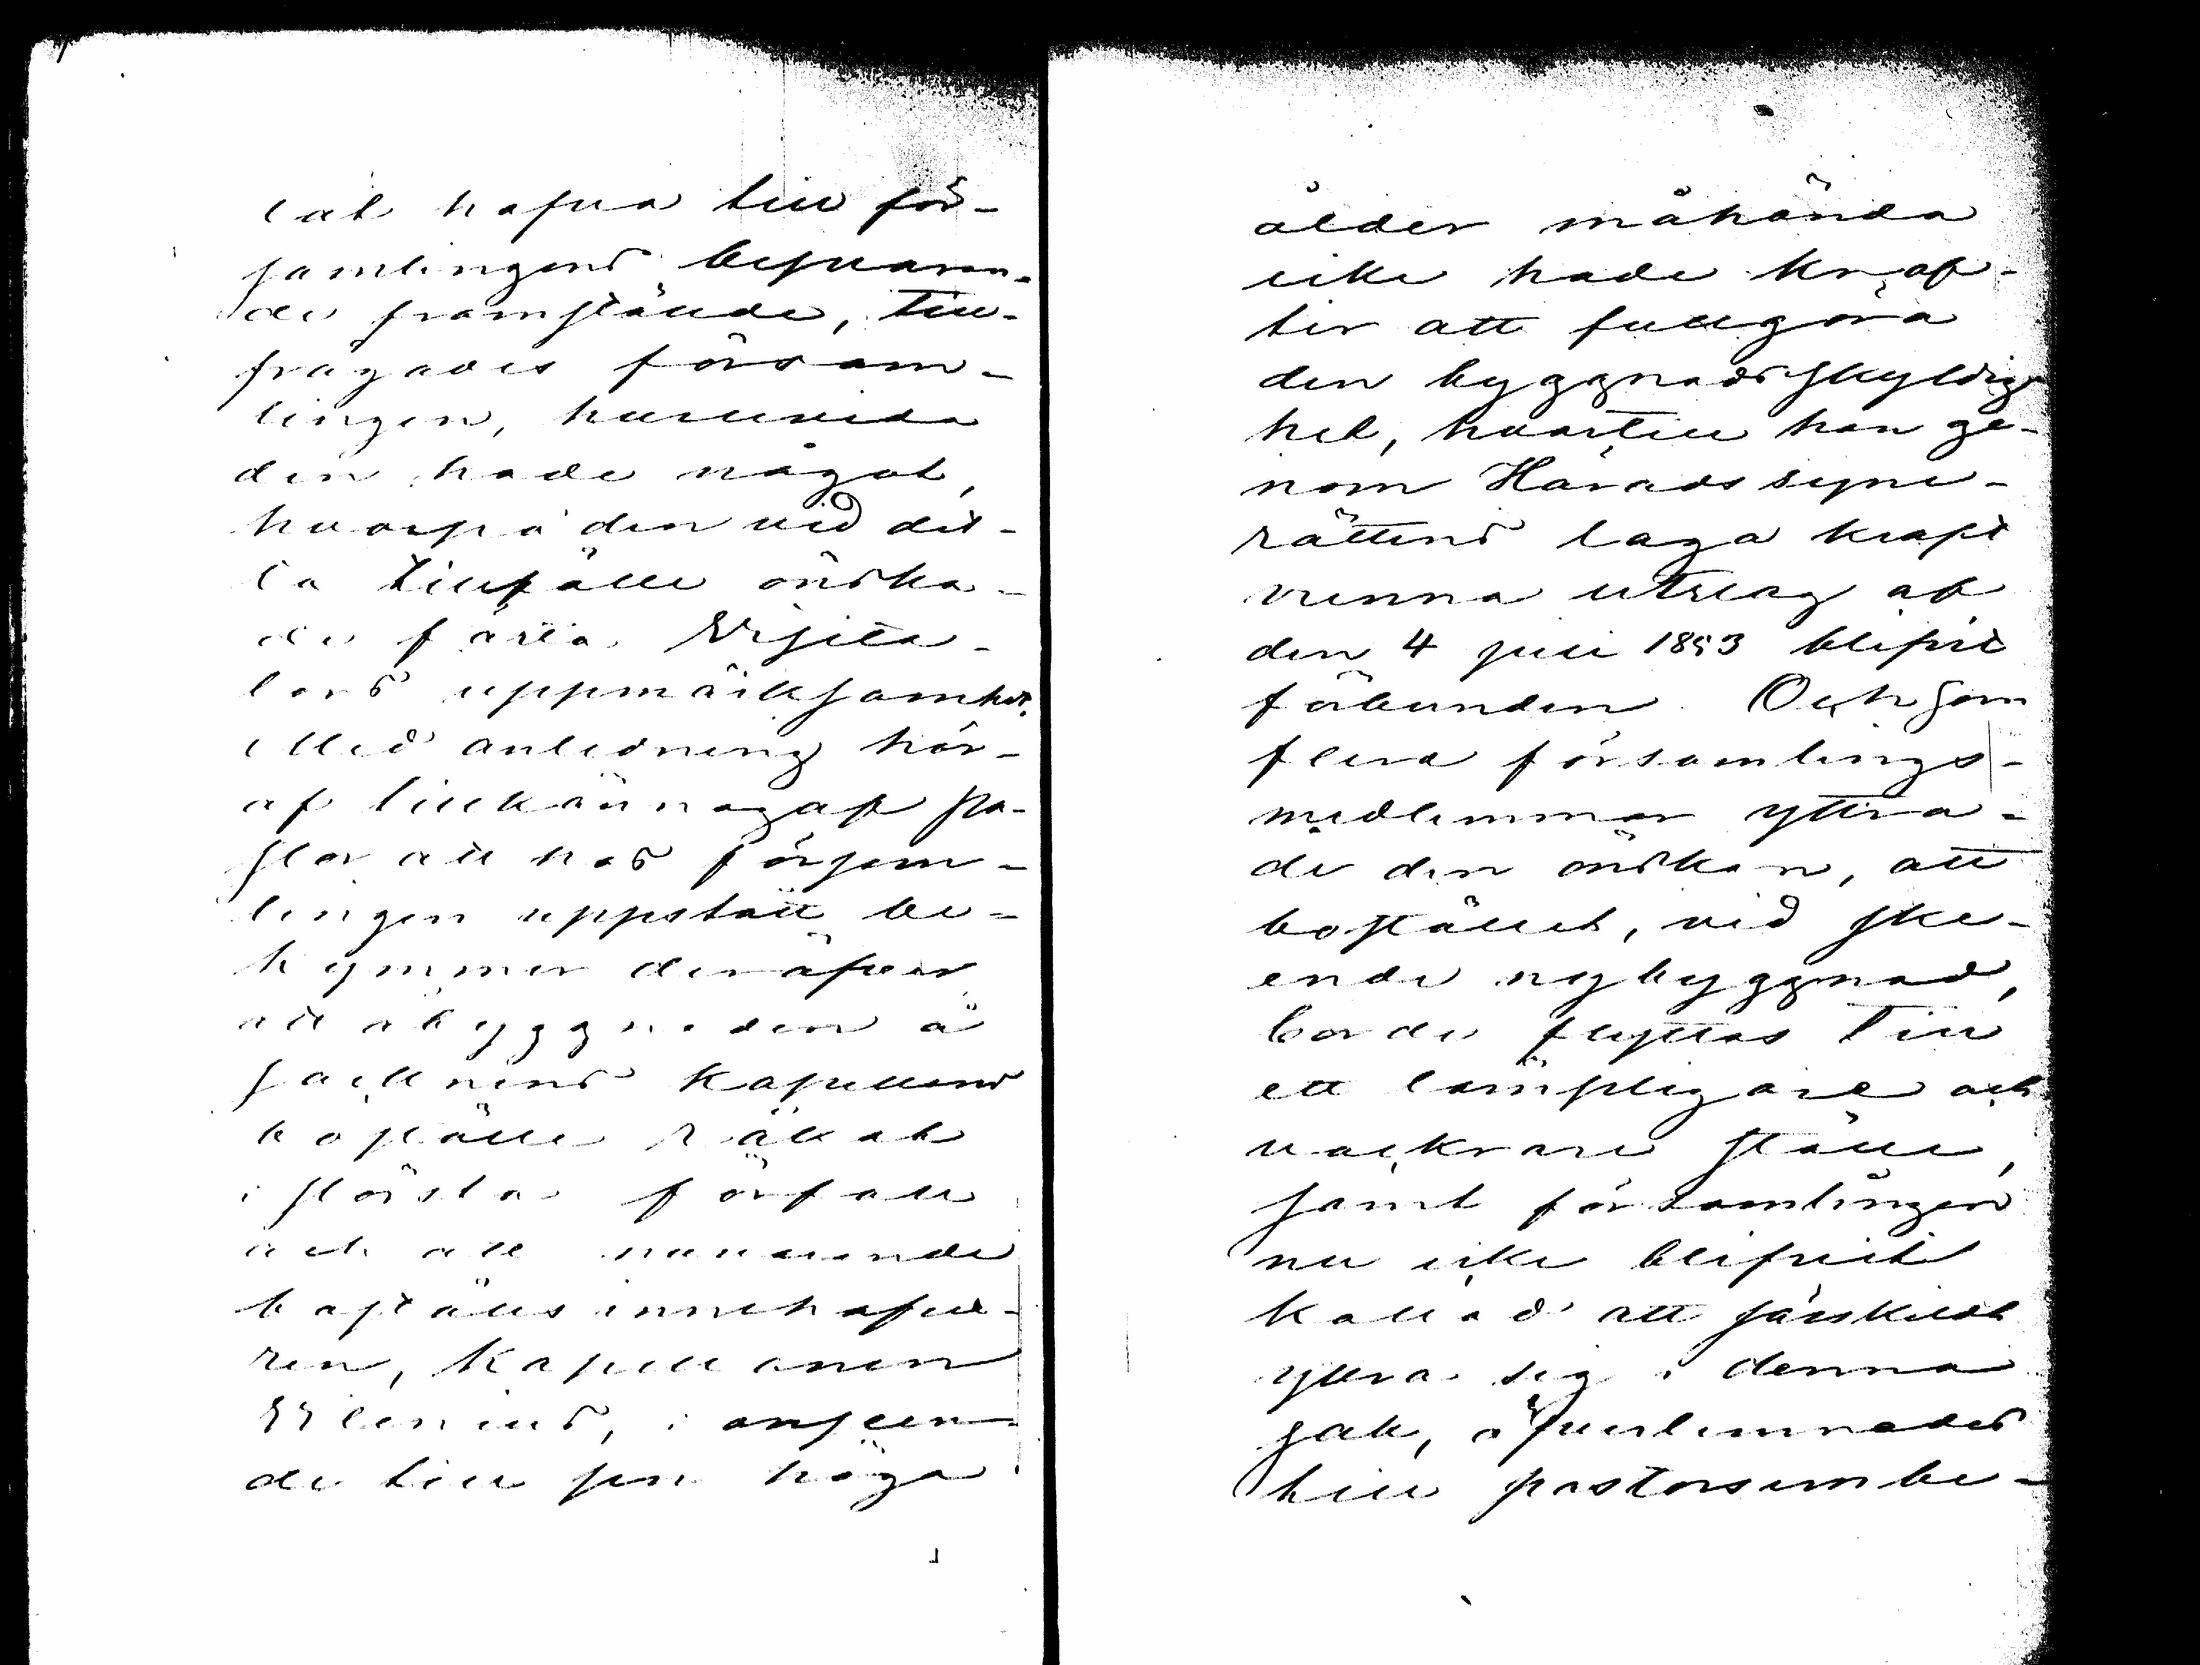 tat hafva till för-
samlingens besvaran-
de framställde, till-
frågades försam-
lingen, huruvida
den hade något,
hvarpå den vid det-
ta tillfälle önska-
de fästa Visita-
tors uppmärksamhet.
Med anledning här-
af tillkännagaf pa-
stor att hos försam-
lingen uppstått be-
kymmer deröfver
att åbyggnaden å
socknens kapellans
boställe råkat
i största förfall
och att nuvarande
boställs innehafva-
ren, kapellanen
Wilenius, i anseen-
de till sin höga
ålder måhända
icke hade kraf-
ter att fullgöra
den byggnadsskyldig
het, hvartill han ge-
nom Häradssyne-
rättens laga kraft
vunna utslag af
den 4 juli 1893 blifvit
förbunden. Och som
flera församlings-
medlemmar yttra-
de den önskan, att
bostället, vid ske-
ende nybyggnad,
borde flyttas till
ett lämpligare och
vackrare ställe,
samt församlingen
nu icke blifvit
kallad att särskildt
yttra sig i denna
sak, öfverlemnades
till pastorsembe-